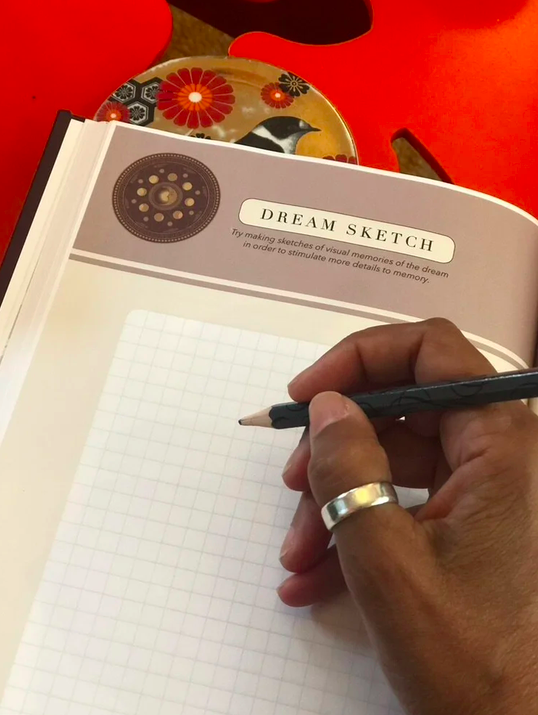 DREAM SKETCH
Try making sketches of visual memories of the dream
in order to stimulate more details to memory.